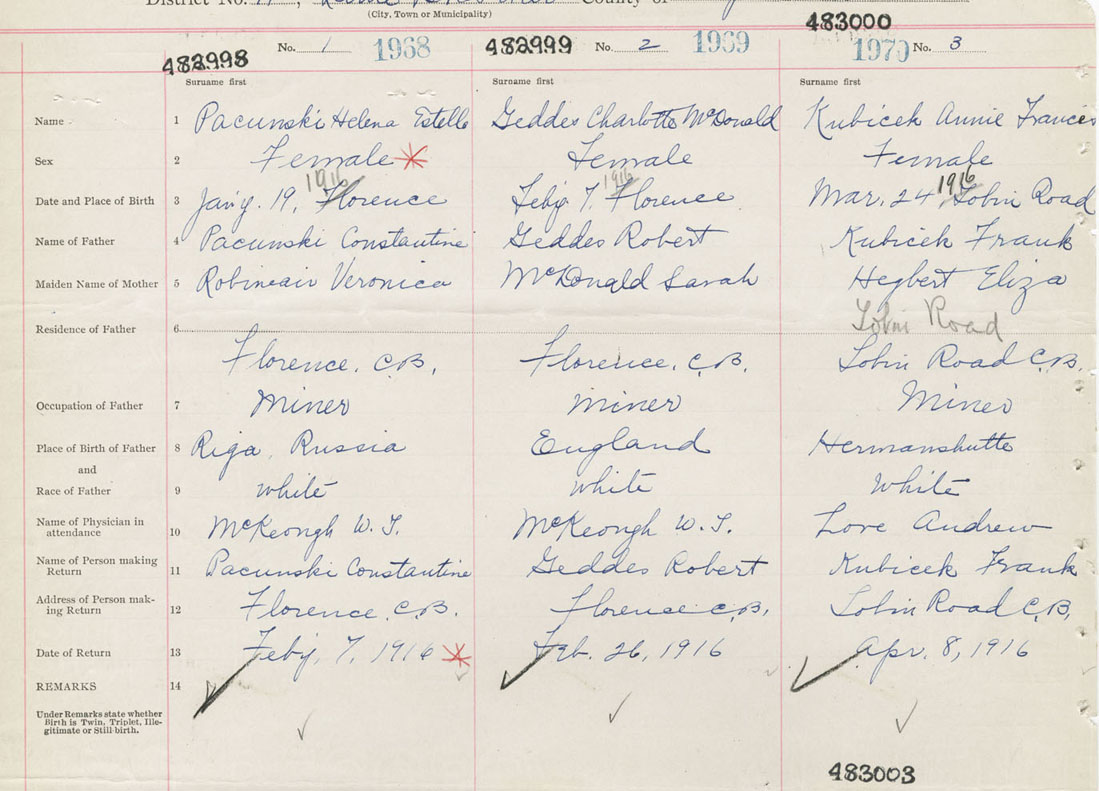 District No.
County of
(City, Town or Municipality)
483000
482998 No. 1 1968
482999 No. 2 1969
1970 No. 3
Surname first
Surname first
Surname first
Name 1 Pacunski Helena Estelle Geddes Charlotte McDonald Kubicek Annie Frances
Sex 2 Female * Female Female
1916 1916 1916
Date and Place of Birth 3 Jan'y. 19, Florence Feb'y 7, Florence Mar. 24, Tobin Road
Name of Father 4 Pacunski Constantine Geddes Robert Kubicek Frank
Maiden Name of Mother 5 Veronica McDonald Sarah Eliza
Tobin Road
Residence of Father 6
Florence, C.B. Florence, C.B. Tobin Road C.B.
Occupation of Father 7 Miner Miner Miner
Place of Birth of Father 8 Riga, Russia England Hermanshutte
and
Race of Father 9 White White White
Name of Physician in
attendance 10 McKeough W. F. McKeough W. F. Love Andrew
Name of Person making
Return 11 Pacunski Constantine Geddes Robert Kubicek Frank
Address of Person mak-
ing Return 12 Florence C.B. Florence C.B. Tobin Road C.B.
Date of Return 13 Feb'y. 7, 1916 * Feb. 26, 1916 Apr. 8, 1916
REMARKS 14
Under Remarks state whether
Birth is Twin, Triplet, Ille-
gitimate or Still-birth.
483003